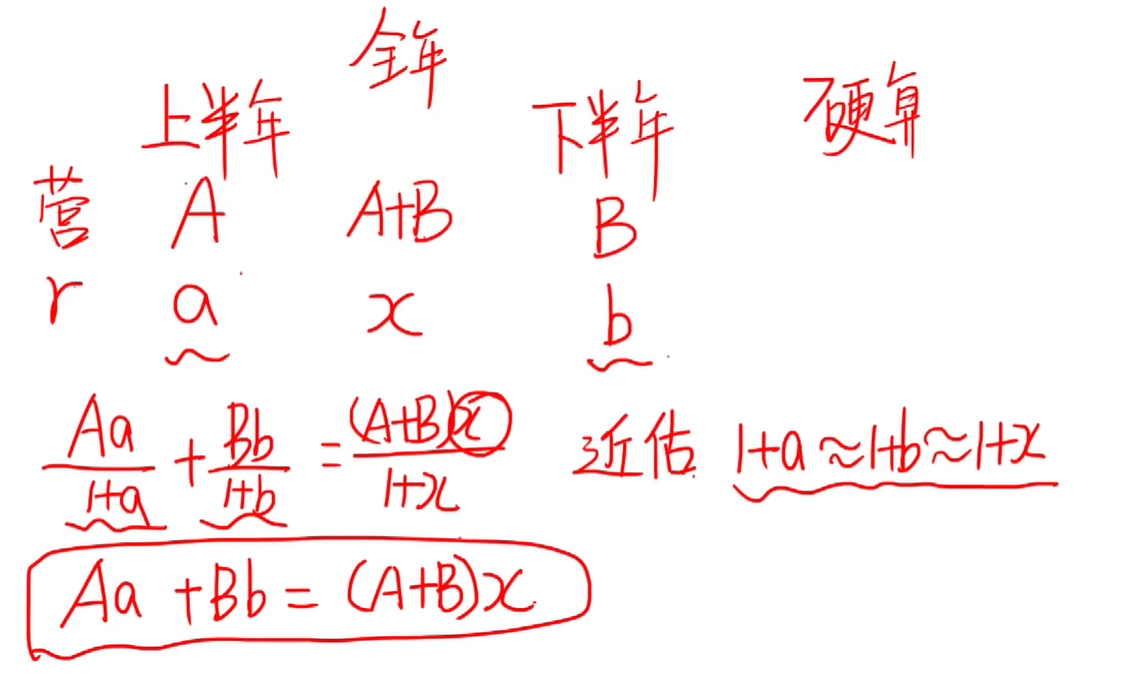 全年
上半年 下半年 硬算
营 A A+B B
r a x b
Aa/(1+a) + Bb/(1+b) = (A+B)x/(1+x) 近估 1+a≈1+b≈1+x
Aa + Bb = (A+B)x